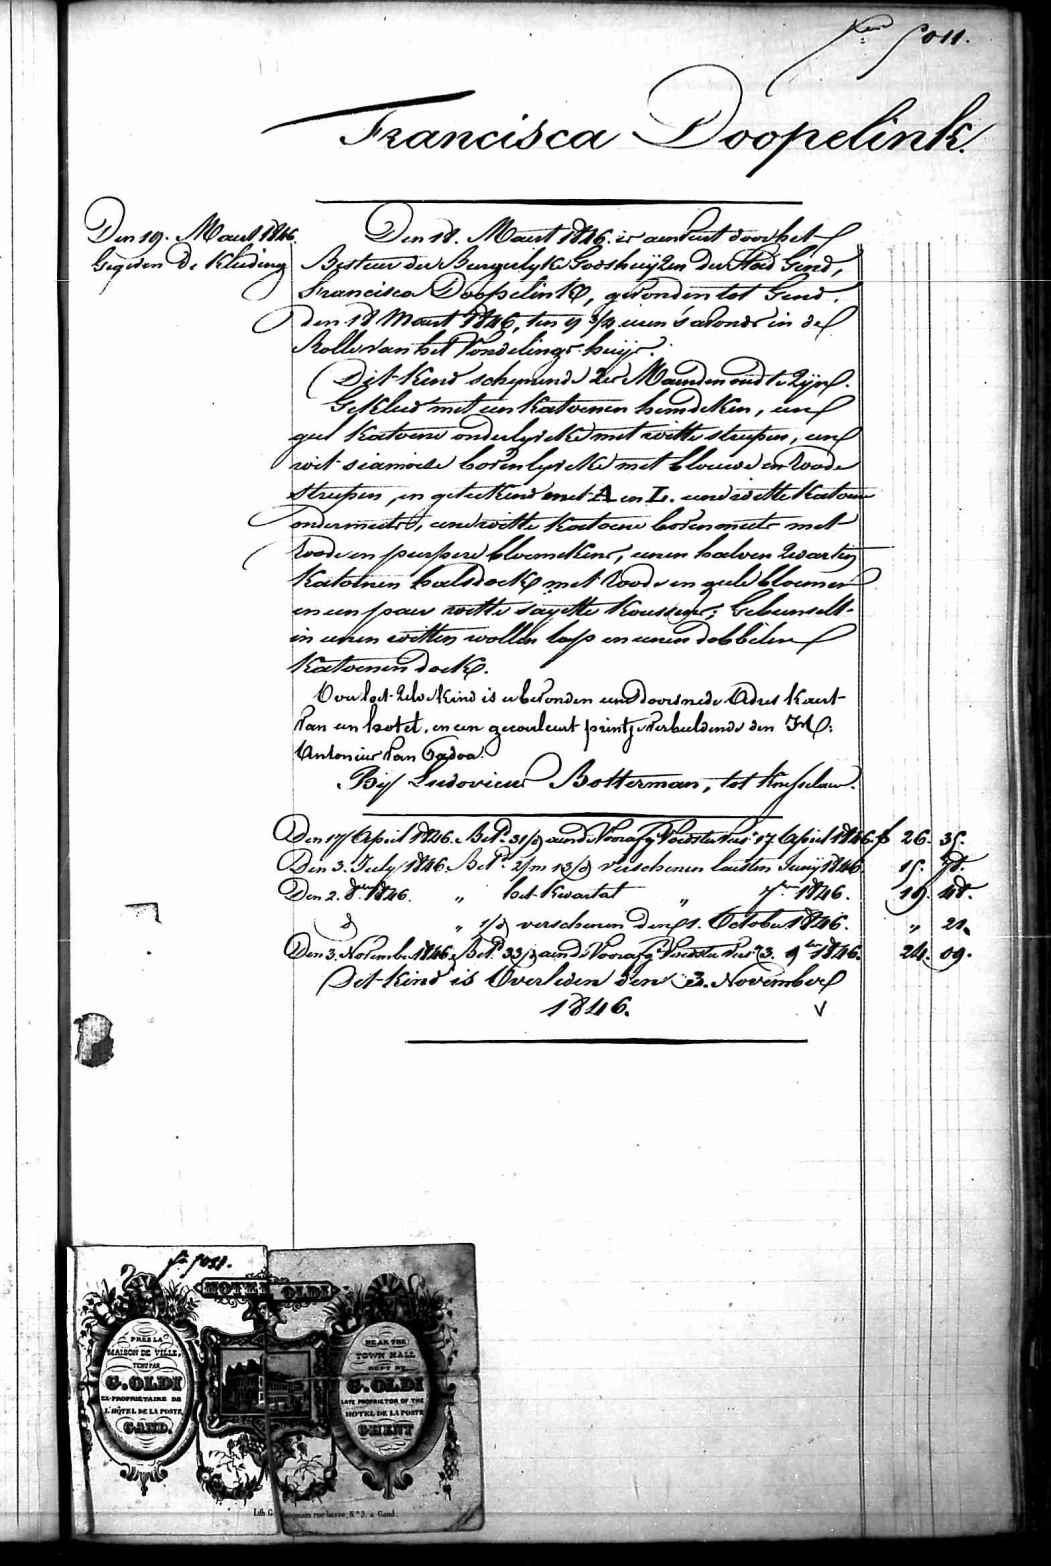 5011.
Francisca Doopelink.
Den 19. Maert 1846.
Gegeven De Kleeding
Den 18. Maert 1846. is aenveirt door het
Bestuer der Burgerlyke Godshuijzen der Stad Gend,
Francisca Doopelink, gevonden tot Gend.
den 18 Maert 1846, ten 9 3/4 uren 's avonds in de
Rolle van het Vondelings-huijs.
Dit kind schynende 2es Maenden oud te zijn.
Gekleed met een Katoenen hemdeken, een
geel Katoene onderlyveke met witte streepen, een
wit siamoise bovenlyveke met blouwe en roode
streepen, en geteekend met A en L. eene witte Katoene
ondermuts, eene witte Katoene bovenmuts met
roode en purpere bloemekens, eenen halven zwarten
Katoenen halsdoek met roode en geele bloemen
en een paer witte sayette koussens; Gebunselt
in eenen witten wollen lap en eenen dobbelen
Katoenen doek.
Over het zelve kind is er bevonden een doorsnede Adres kaert
van een hotel, en een gecouleurt printje verbeeldende den H:
Antonius van Padoa.
Bij Ludovicus Botterman, tot Knesselaere.
Den 17 April 1846. Bet. 31/d aende Voorafg. Voedster tot 17 April 1846. f 26. 35.
Den 3. July 1846. Bet. 2/m 13/d verschenen laesten Junij 1846. 15. 78.
Den 2. 8ber 1846. " het kwartael " 7ber 1846. 19. 48.
d° " 1/d verschenen den 1. October 1846. " 21.
Den 3. November 1846. Bet. 33/d aende Voorafg. Voedster tot 3. 9ber 1846. 24. 09.
Dit kind is Overleden den 3. November
1846. V
f° 5011.
HOTEL OLDI
PRÈS LA
MAISON DE VILLE,
TENU PAR
G. OLDI
EX-PROPRIETAIRE DE
L'HÔTEL DE LA POSTE
GAND.
NEAR THE
TOWN HALL
KEPT BY
G. OLDI
LATE PROPRIETOR OF THE
HOTEL DE LA POSTE
GHENT
Lith G. rue N° 2. a Gand.